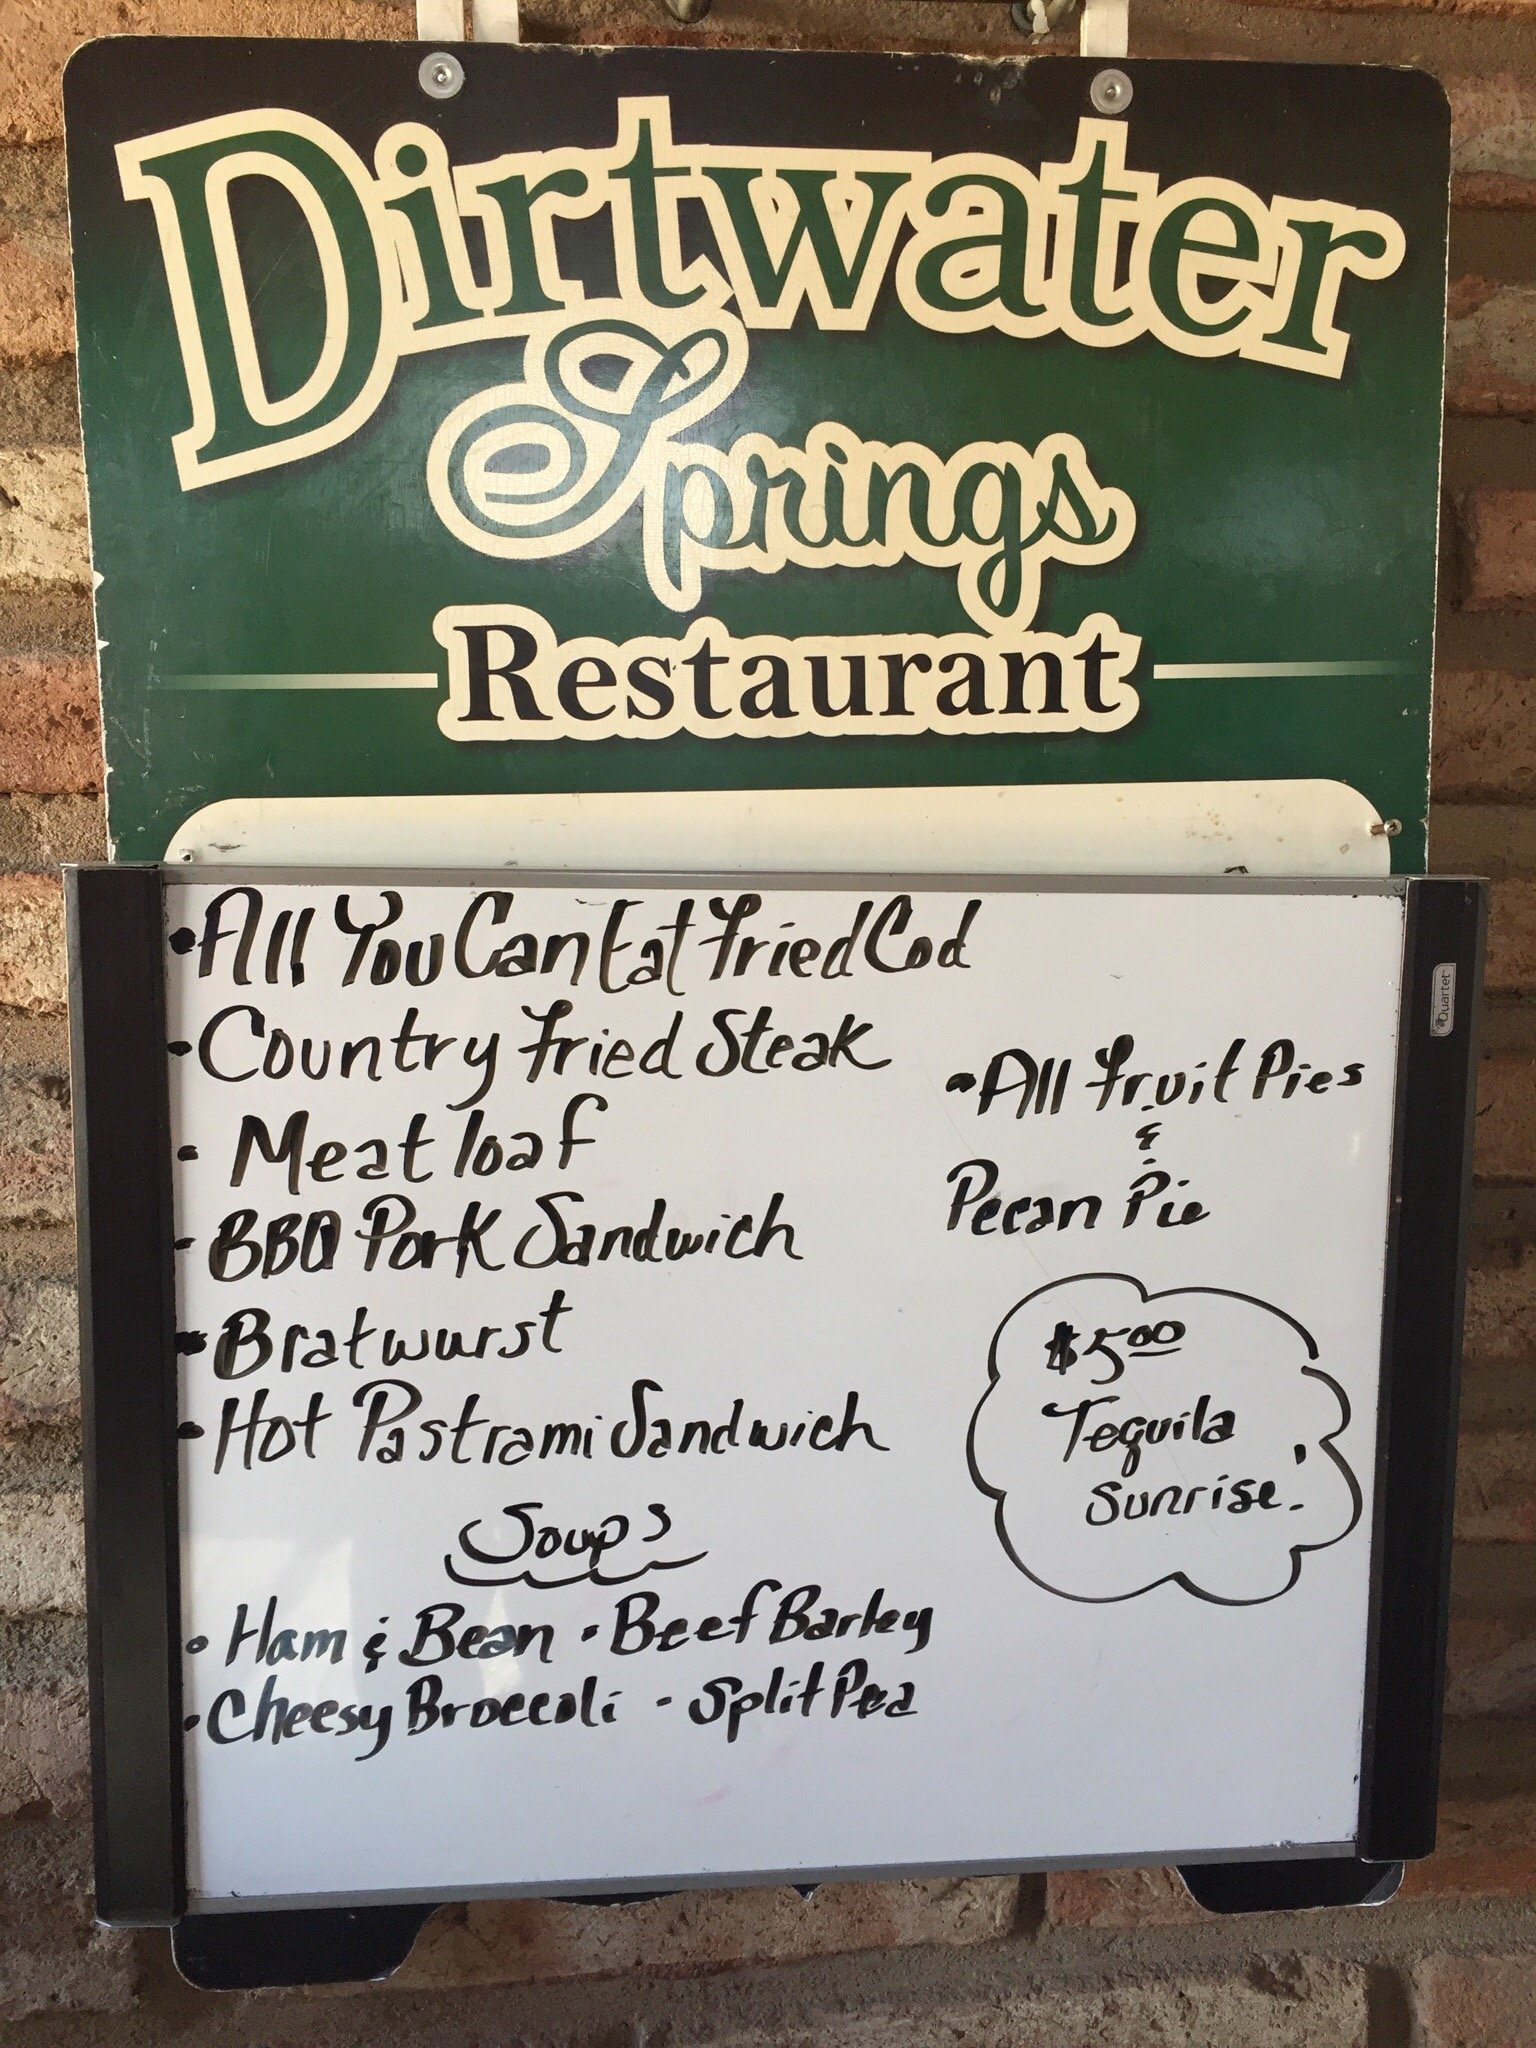 Dirtwater
Springs
Restaurant
Quartet
• All You Can Eat Fried Cod
• Country Fried Steak
• Meat loaf
• BBQ Pork Sandwich
• Bratwurst
• Hot Pastrami Sandwich
Soups
• Ham & Bean • Beef Barley
• Cheesy Broccoli • Split Pea
• All Fruit Pies
&
Pecan Pie
$5.00
Tequila
Sunrise.